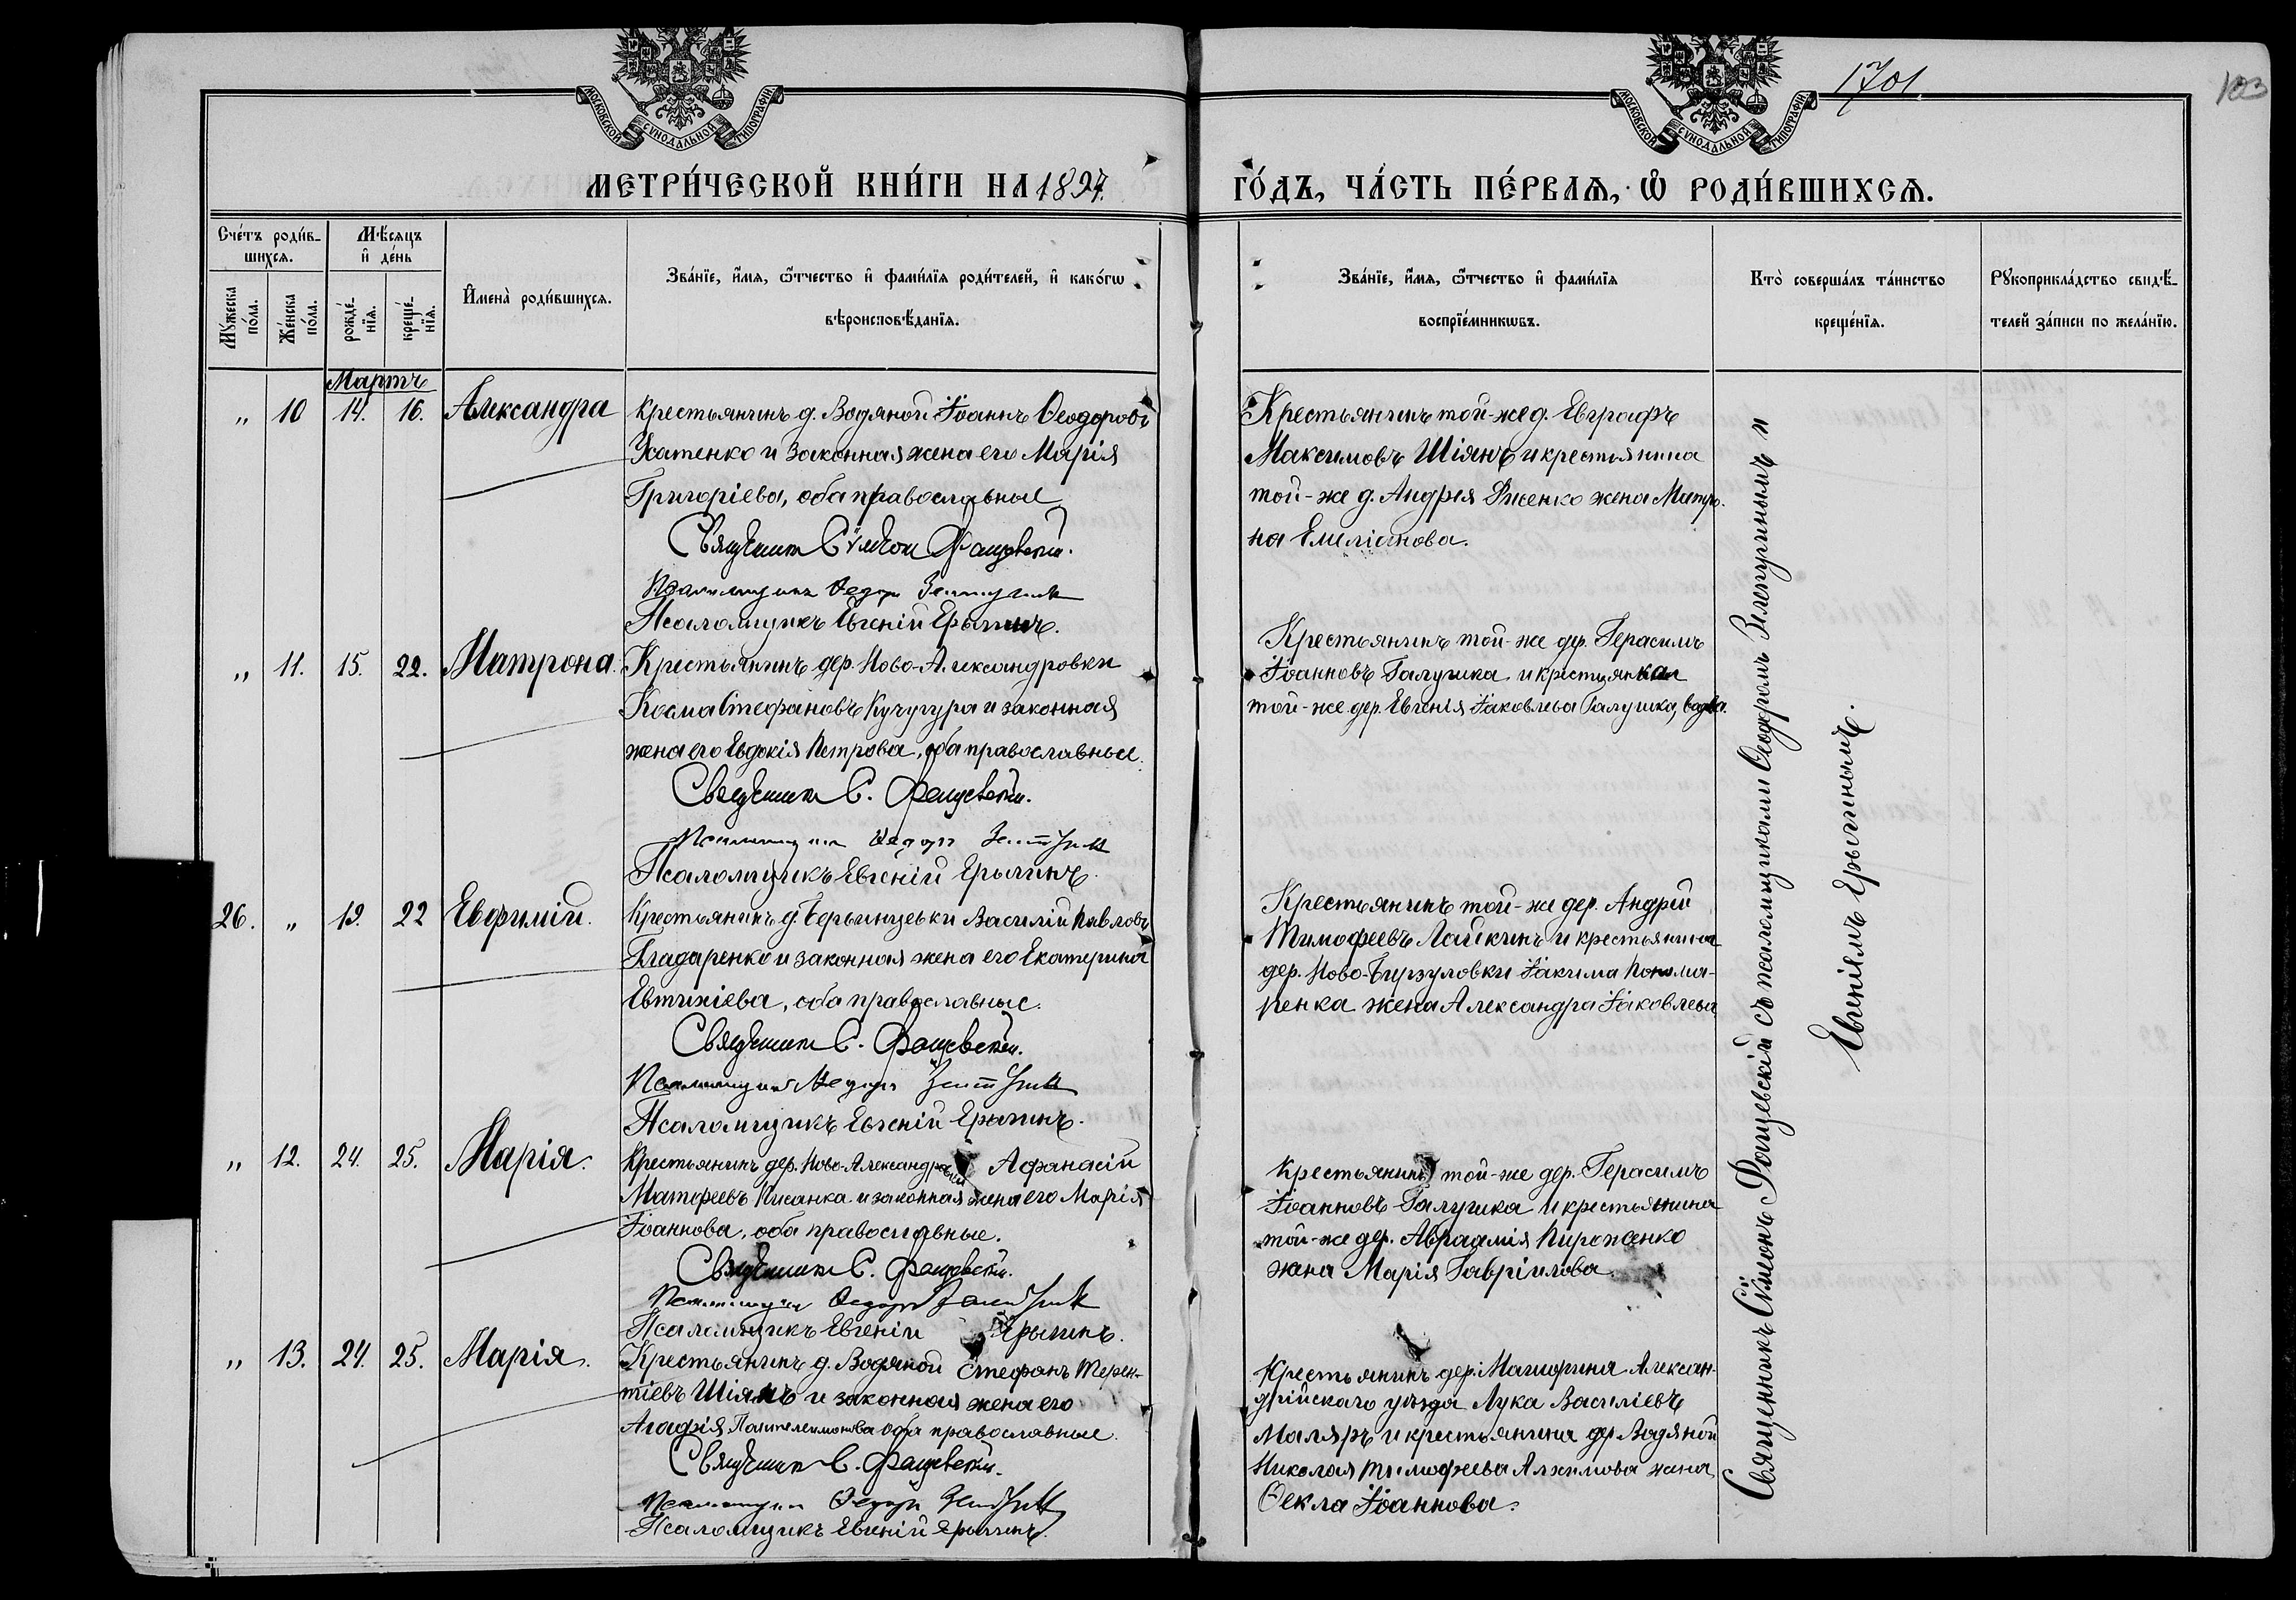 1701
103
МОСКОВСКОЙ СѴНОДАЛЬНОЙ ТИПОГРАФІИ
МОСКОВСКОЙ СѴНОДАЛЬНОЙ ТИПОГРАФІИ
МЕТРИ́ЧЕСКОЙ КНИ́ГИ НА 1897.
ГО́ДЪ, ЧА́СТЬ ПЕ́РВАѦ, Ѡ РОДИ́ВШИХСѦ.
Сче́тъ роди́в-
шихсѧ.
Мѣ́сѧцъ
и҆ де́нь
Мꙋ́жеска
по́ла.
Же́нска
по́ла.
рожде́-
нїѧ.
креще́-
нїѧ.
И҆мена̀ роди́вшихсѧ.
Зва́нїе, и҆́мѧ, ѻ҆́тчество и҆ фами́лїѧ роди́телей, и҆ како́гѡ
вѣроисповѣ́данїѧ.
Зва́нїе, и҆́мѧ, ѻ҆́тчество и҆ фами́лїѧ
воспрїе́мникѡвъ.
Кто̀ соверша́лъ та́инство
креще́нїѧ.
Рꙋкоприкла́дство свидѣ́-
телей за́писи по жела́нїю.
Мартъ
„ 10 14. 16. Александра
Крестьянинъ д. Водяной Іоаннъ Ѳеодоровъ
Усатенко и законная жена его Марія
Григоріева, оба православные
Священникъ Сѵмеон Фащевскій.
Псаломщикъ Ѳедоръ
Псаломщикъ Евгеній Ерыгинъ.
Крестьянинъ той-же д. Евграфъ
Максимовъ Шіянъ и крестьянина
той-же д. Андрея Лисенко жена Матро-
на Емеліанова.
„ 11. 15. 22. Матрона.
Крестьянинъ дер. Ново-Александровки
Косма Стефановъ Кучугура и законная
жена его Евдокія Петрова, оба православные.
Священникъ С. Фащевскій.
Псаломщикъ Ѳедоръ
Псаломщикъ Евгеній Ерыгинъ.
Крестьянинъ той-же дер. Герасимъ
Іоанновъ Галушка и крестьянка
той-же дер. Евгенія Іаковлева Галушка, вдова.
26. „ 19. 22 Евфимій.
Крестьянинъ д. Василій Павловъ
и законная жена его Екатерина
Евтихіева, оба православные.
Священникъ С. Фащевскій.
Псаломщикъ Ѳедоръ
Псаломщикъ Евгеній Ерыгинъ.
Крестьянинъ той-же дер. Андрей
Тимофеевъ Лайкинъ и крестьянина
дер. Ново-Бирзуловки Іакима Понома-
ренка жена Александра Іаковлева
„ 12. 24. 25. Марія.
Крестьянинъ дер. Ново-Александровки Афанасій
Матфеевъ Писанка и законная жена его Марія
Іоаннова, оба православные.
Священникъ С. Фащевскій.
Псаломщикъ Ѳедоръ
Псаломщикъ Евгеній Ерыгинъ.
Крестьянинъ той-же дер. Герасимъ
Іоанновъ Галушка и крестьянина
той-же дер. Авраамія Пироженко
жена Марія Гавріилова
„ 13. 24. 25. Марія.
Крестьянинъ д. Водяной Стефанъ Терен-
тіевъ Шіянъ и законная жена его
Агафія Пантелеимонова оба православные.
Священникъ С. Фащевскій.
Псаломщикъ Ѳедоръ
Псаломщикъ Евгеній Ерыгинъ.
Крестьянинъ дер. Маіорина Алексан-
дрійскаго уѣзда Лука Василіевъ
Маляръ и крестьянина дер. Водяной
Николая Тимофеева жена
Ѳекла Іоаннова.
Священникъ Сѵмеонъ Фащевскій съ псаломщиками Ѳеодоромъ и
Евгеніемъ Ерыгинымъ.